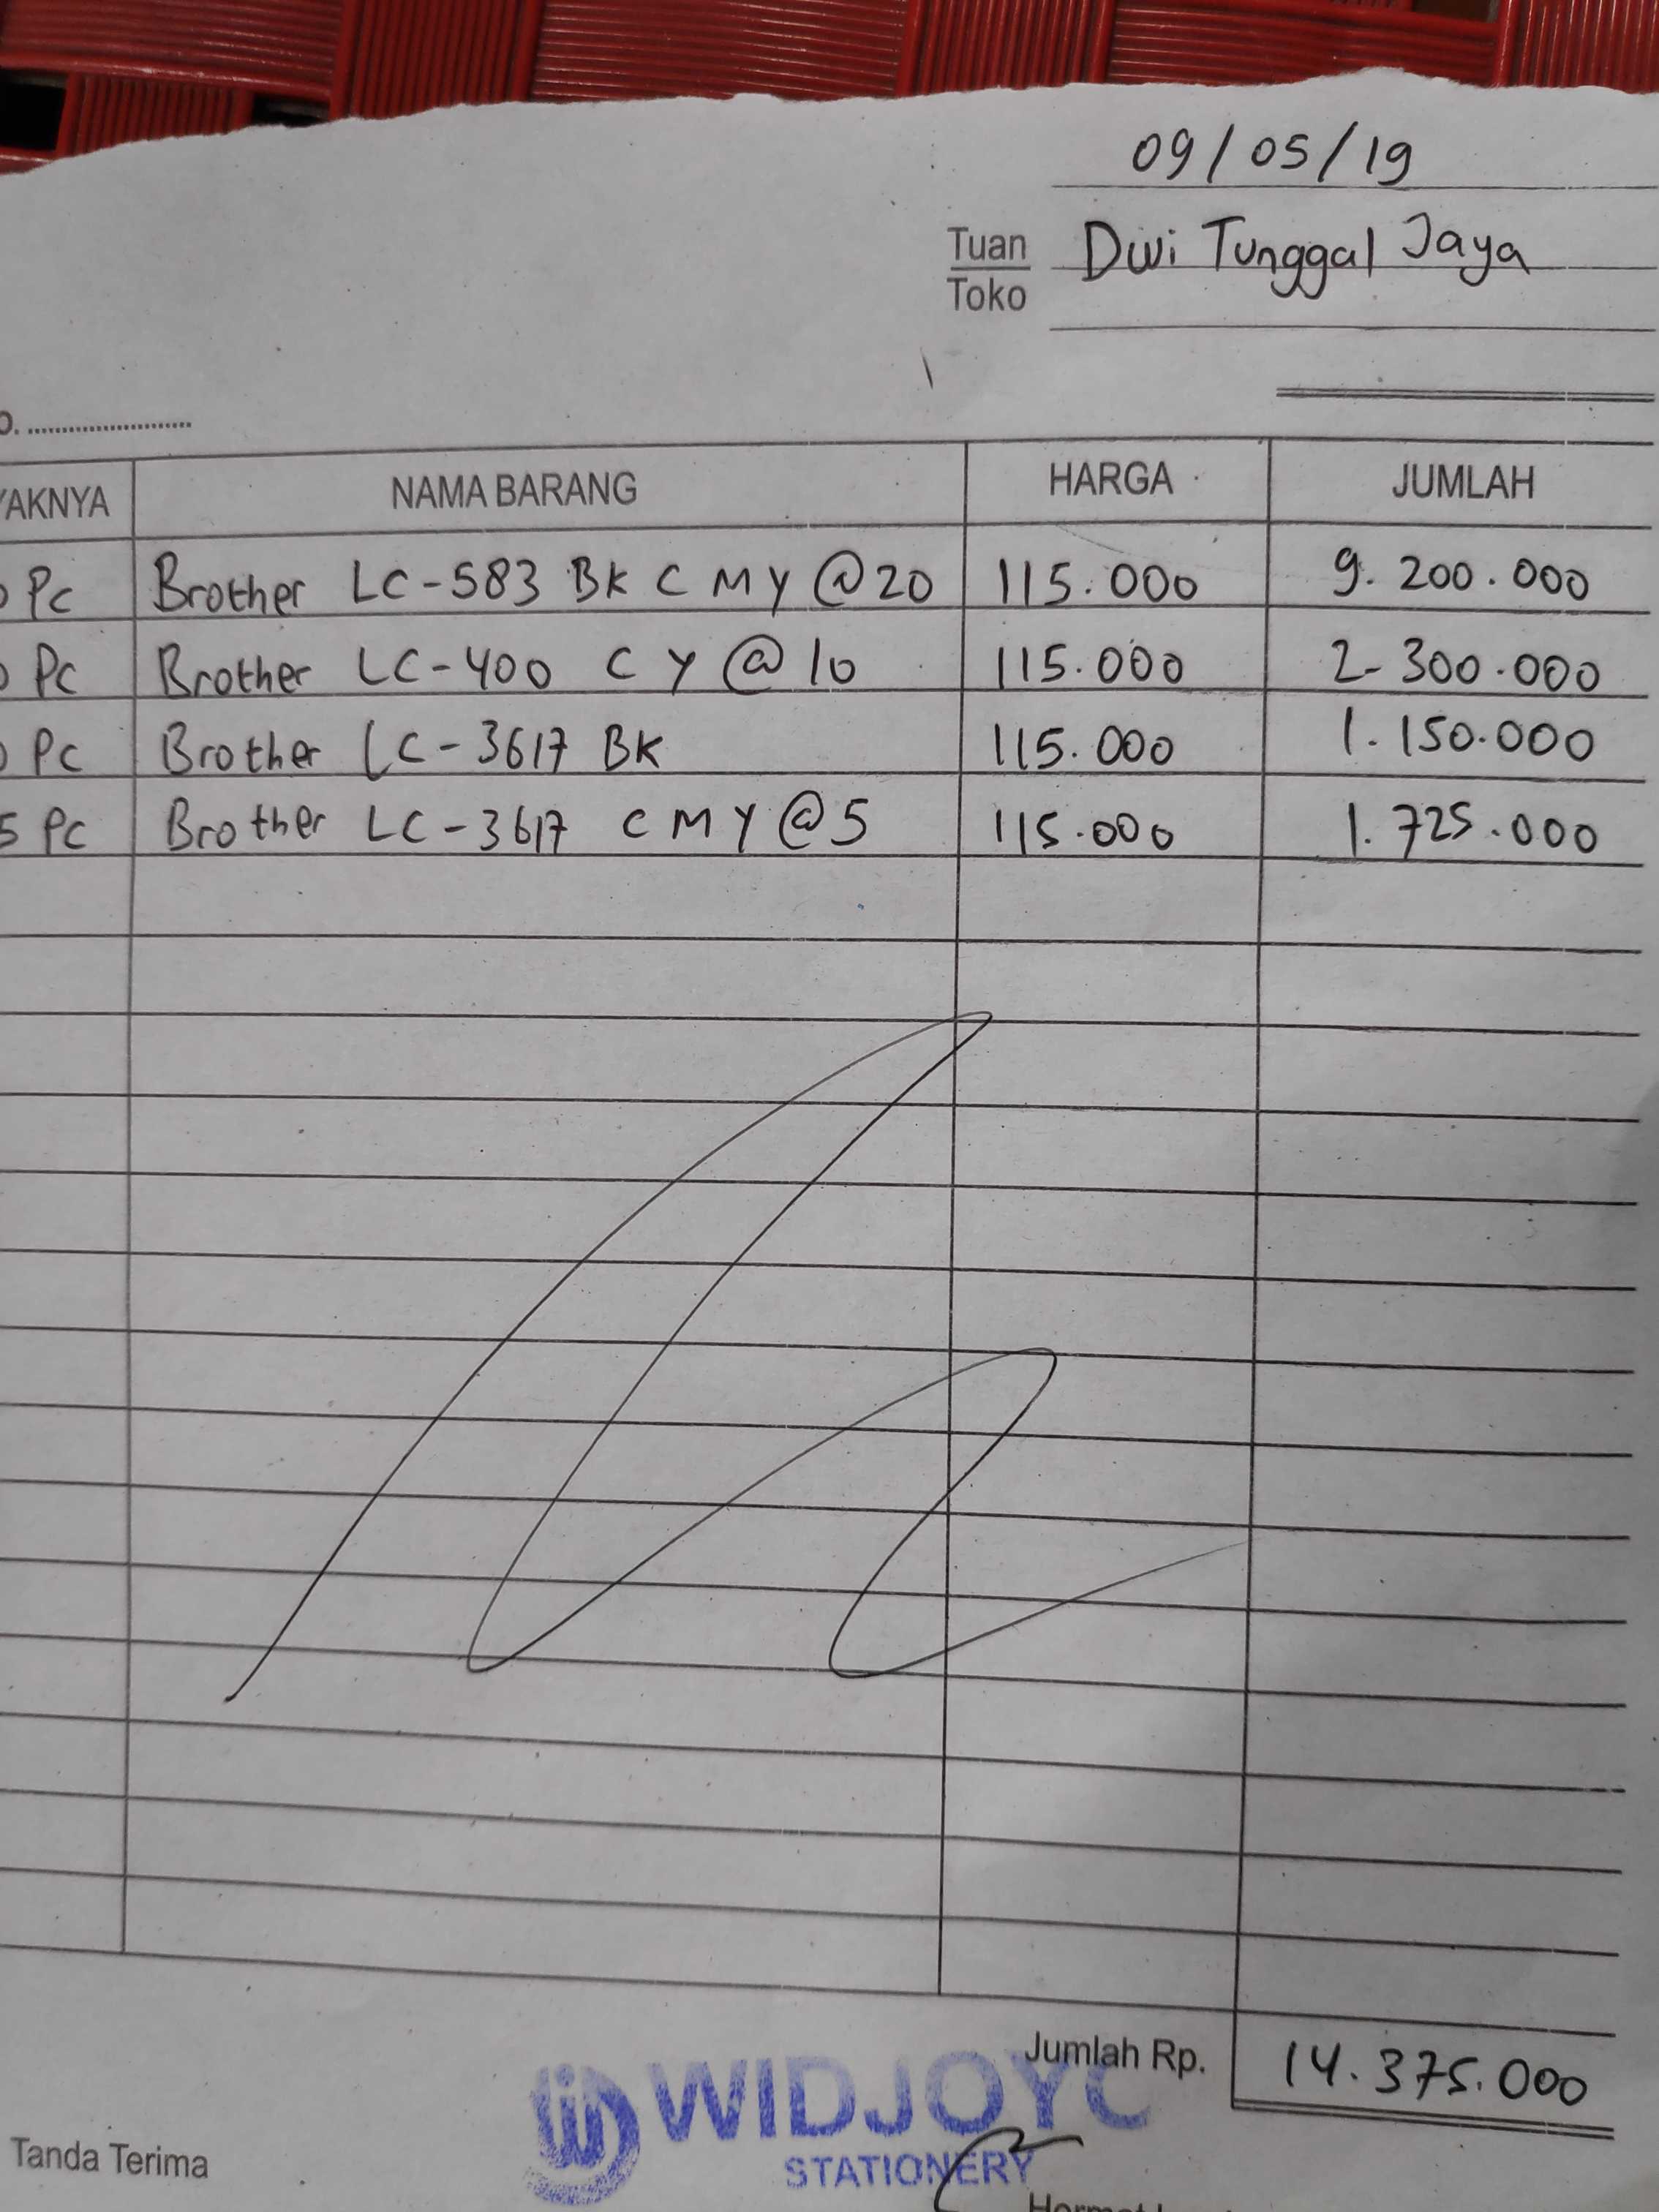 09/05/19
Tuan Dwi Tunggal Jaya
Toko
o. ........................
YAKNYA NAMA BARANG HARGA JUMLAH
0 Pc Brother LC-583 BK C M Y @20 115.000 9.200.000
0 Pc Brother LC-400 C Y @ 10 115.000 2-300.000
0 Pc Brother LC-3617 BK 115.000 1.150.000
5 Pc Brother LC-3617 C M Y @5 115.000 1.725.000
Jumlah Rp. 14.375.000
WIDJOYO
STATIONERY
Tanda Terima